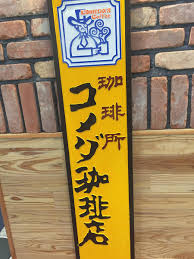 KOMEDA'S
Coffee
珈琲所
コメダ珈琲店